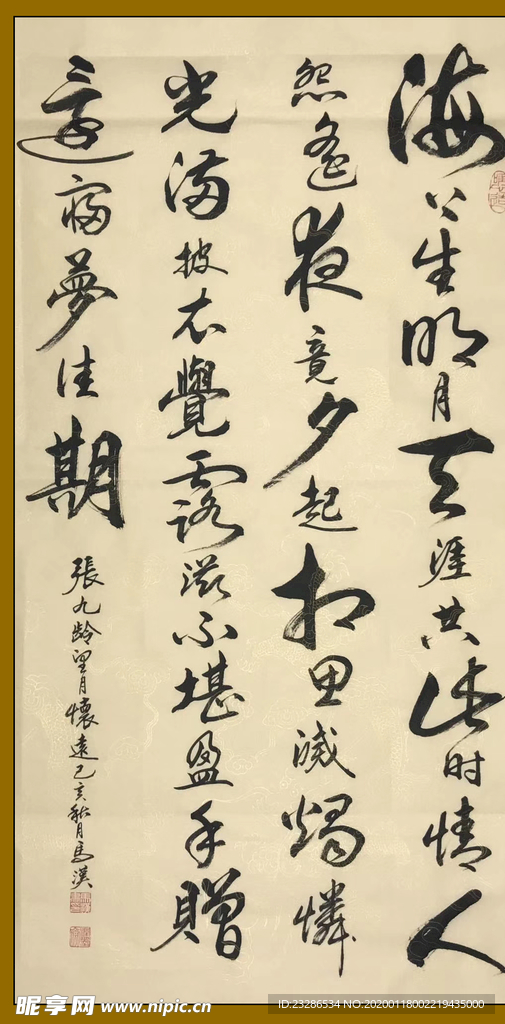 海上生明月天涯共此时情人
怨遙夜竟夕起相思滅燭憐
光滿披衣覺露滋不堪盈手贈
還寢夢佳期
張九齡望月懷遠己亥秋月馬
昵享网 www.nipic.cn
ID:23286534 NO.20200118002219435000